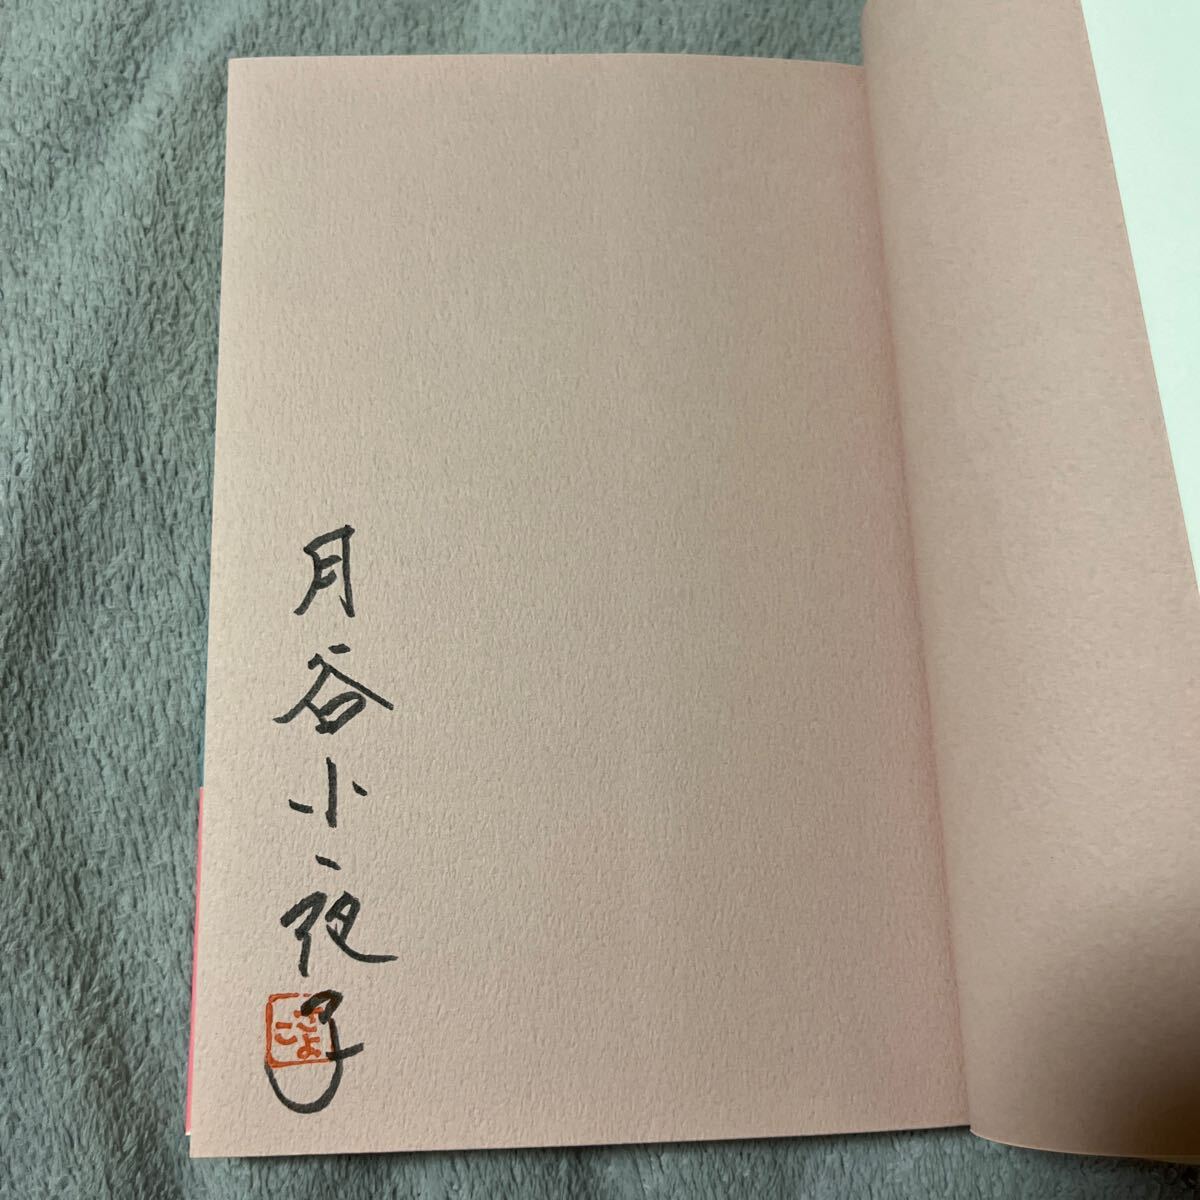 月谷小夜子
さよこ